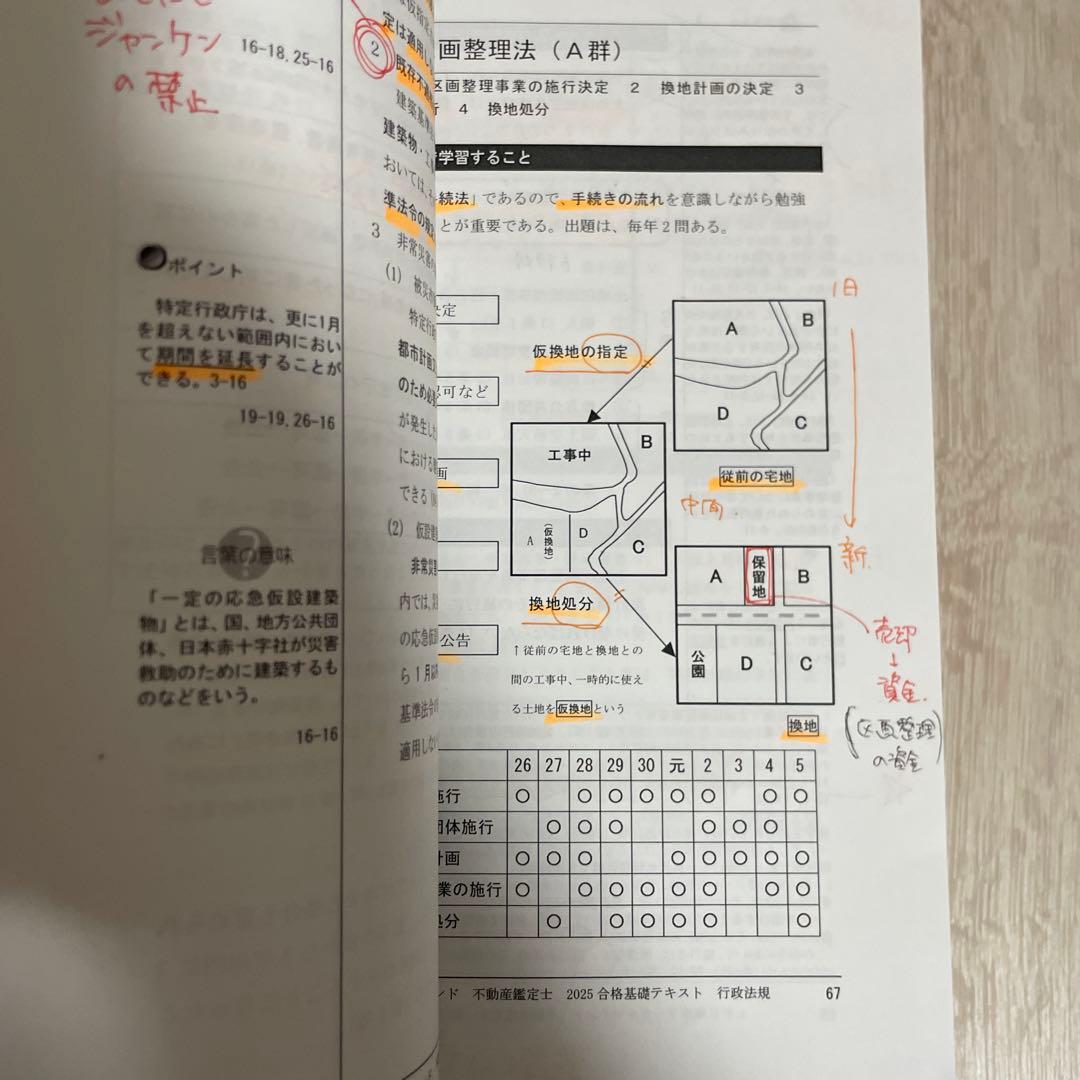 ジャンケン
の禁止
16-18, 25-16
ポイント
特定行政庁は、更に1月
を超えない範囲内におい
て期間を延長することが
できる。3-16
19-19, 26-16
言葉の意味
「一定の応急仮設建築
物」とは、国、地方公共団
体、日本赤十字社が災害
救助のために建築するも
のなどをいう。
16-16
定は適用し
2
既存不適
建築基準
建築物・工
おいては、そ
準法令の規
3 非常災害
(1) 被災
特定行
都市計画
のため必
が発生した
における
できる
(2) 仮設建
非常災害
内では、
の応急仮
ら1月以
基準法令の
適用しな
画整理法（A群）
区画整理事業の施行決定 2 換地計画の決定 3
行 4 換地処分
学習すること
続法」であるので、手続きの流れを意識しながら勉強
とが重要である。出題は、毎年2問ある。
定
認可など
画
公告
仮換地の指定
A
B
D
C
従前の宅地
旧
中間
新
工事中
B
A
（仮換地）
D
C
換地処分
↑従前の宅地と換地との
間の工事中、一時的に使え
る土地を仮換地という
A
保留地
B
公園
D
C
換地
売却
↓
資金
(区画整理
の資金)
26 27 28 29 30 元 2 3 4 5
施行 ○ ○ ○ ○ ○ ○ ○ ○
団体施行 ○ ○ ○ ○ ○ ○
計画 ○ ○ ○ ○ ○ ○ ○ ○
業の施行 ○ ○ ○ ○ ○ ○ ○ ○
処分 ○ ○ ○ ○ ○ ○
ンド 不動産鑑定士 2025 合格基礎テキスト 行政法規 67